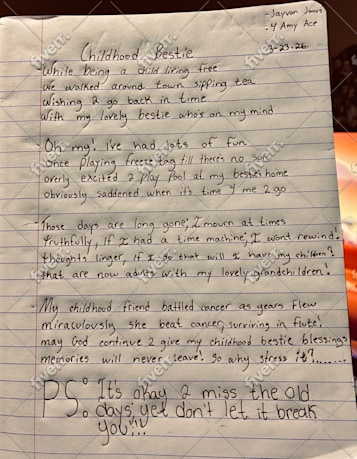 -Jayvon Jones
-4 Amy Ace
3-23-26
Childhood Bestie
-While being a child living free
We walked around town sipping tea
Wishing 2 go back in time
With my lovely bestie who's on my mind
-Oh my! I've had lots of fun
Once playing freeze tag till there's no sun
overly excited 2 play pool at my bestie's home
obviously saddened when it's time 4 me 2 go
-Those days are long gone; I mourn at times
truthfully, If I had a time machine; I wont rewind!
thoughts linger, if I do that will I have my children?
that are now adults with my lovely grandchildren!
-My childhood friend battled cancer as years flew
miraculously she beat cancer, surviving in flute!
may God continue 2 give my childhood bestie blessings
memories will never leave! So why stress it?........
PS: It's okay 2 miss the old
days; yet don't let it break
you!!!
fiverr.